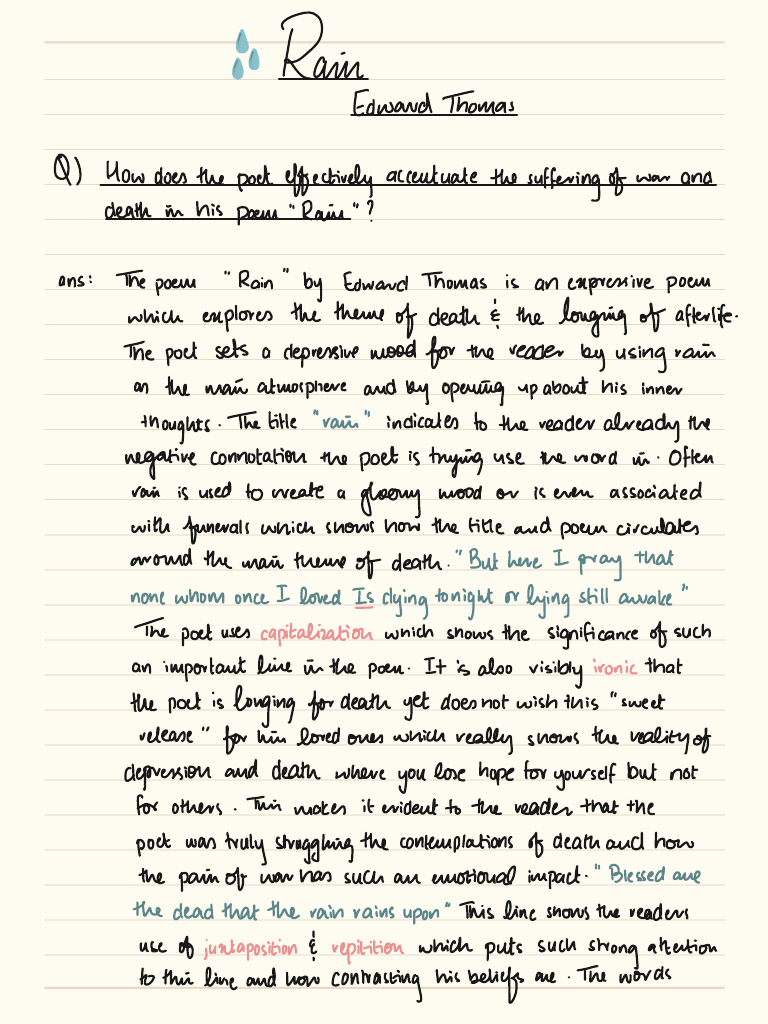 Rain
Edward Thomas
Q) How does the poet effectively accentuate the suffering of war and
death in his poem "Rain"?
ans: The poem "Rain" by Edward Thomas is an expressive poem
which explores the theme of death & the longing of afterlife.
The poet sets a depressive mood for the reader by using rain
as the main atmosphere and by opening up about his inner
thoughts. The title "rain" indicates to the reader already the
negative connotation the poet is trying use the word in. Often
rain is used to create a gloomy mood or is even associated
with funerals which shows how the title and poem circulates
around the main theme of death. "But here I pray that
none whom once I loved Is dying tonight or lying still awake"
The poet uses capitalization which shows the significance of such
an important line in the poem. It is also visibly ironic that
the poet is longing for death yet does not wish this "sweet
release" for him loved ones which really shows the reality of
depression and death where you lose hope for yourself but not
for others. This makes it evident to the reader that the
poet was truly struggling the contemplations of death and how
the pain of war has such an emotional impact. "Blessed are
the dead that the rain rains upon" This line shows the readers
use of juxtaposition & repitition which puts such strong attention
to this line and how contrasting his beliefs are. The words